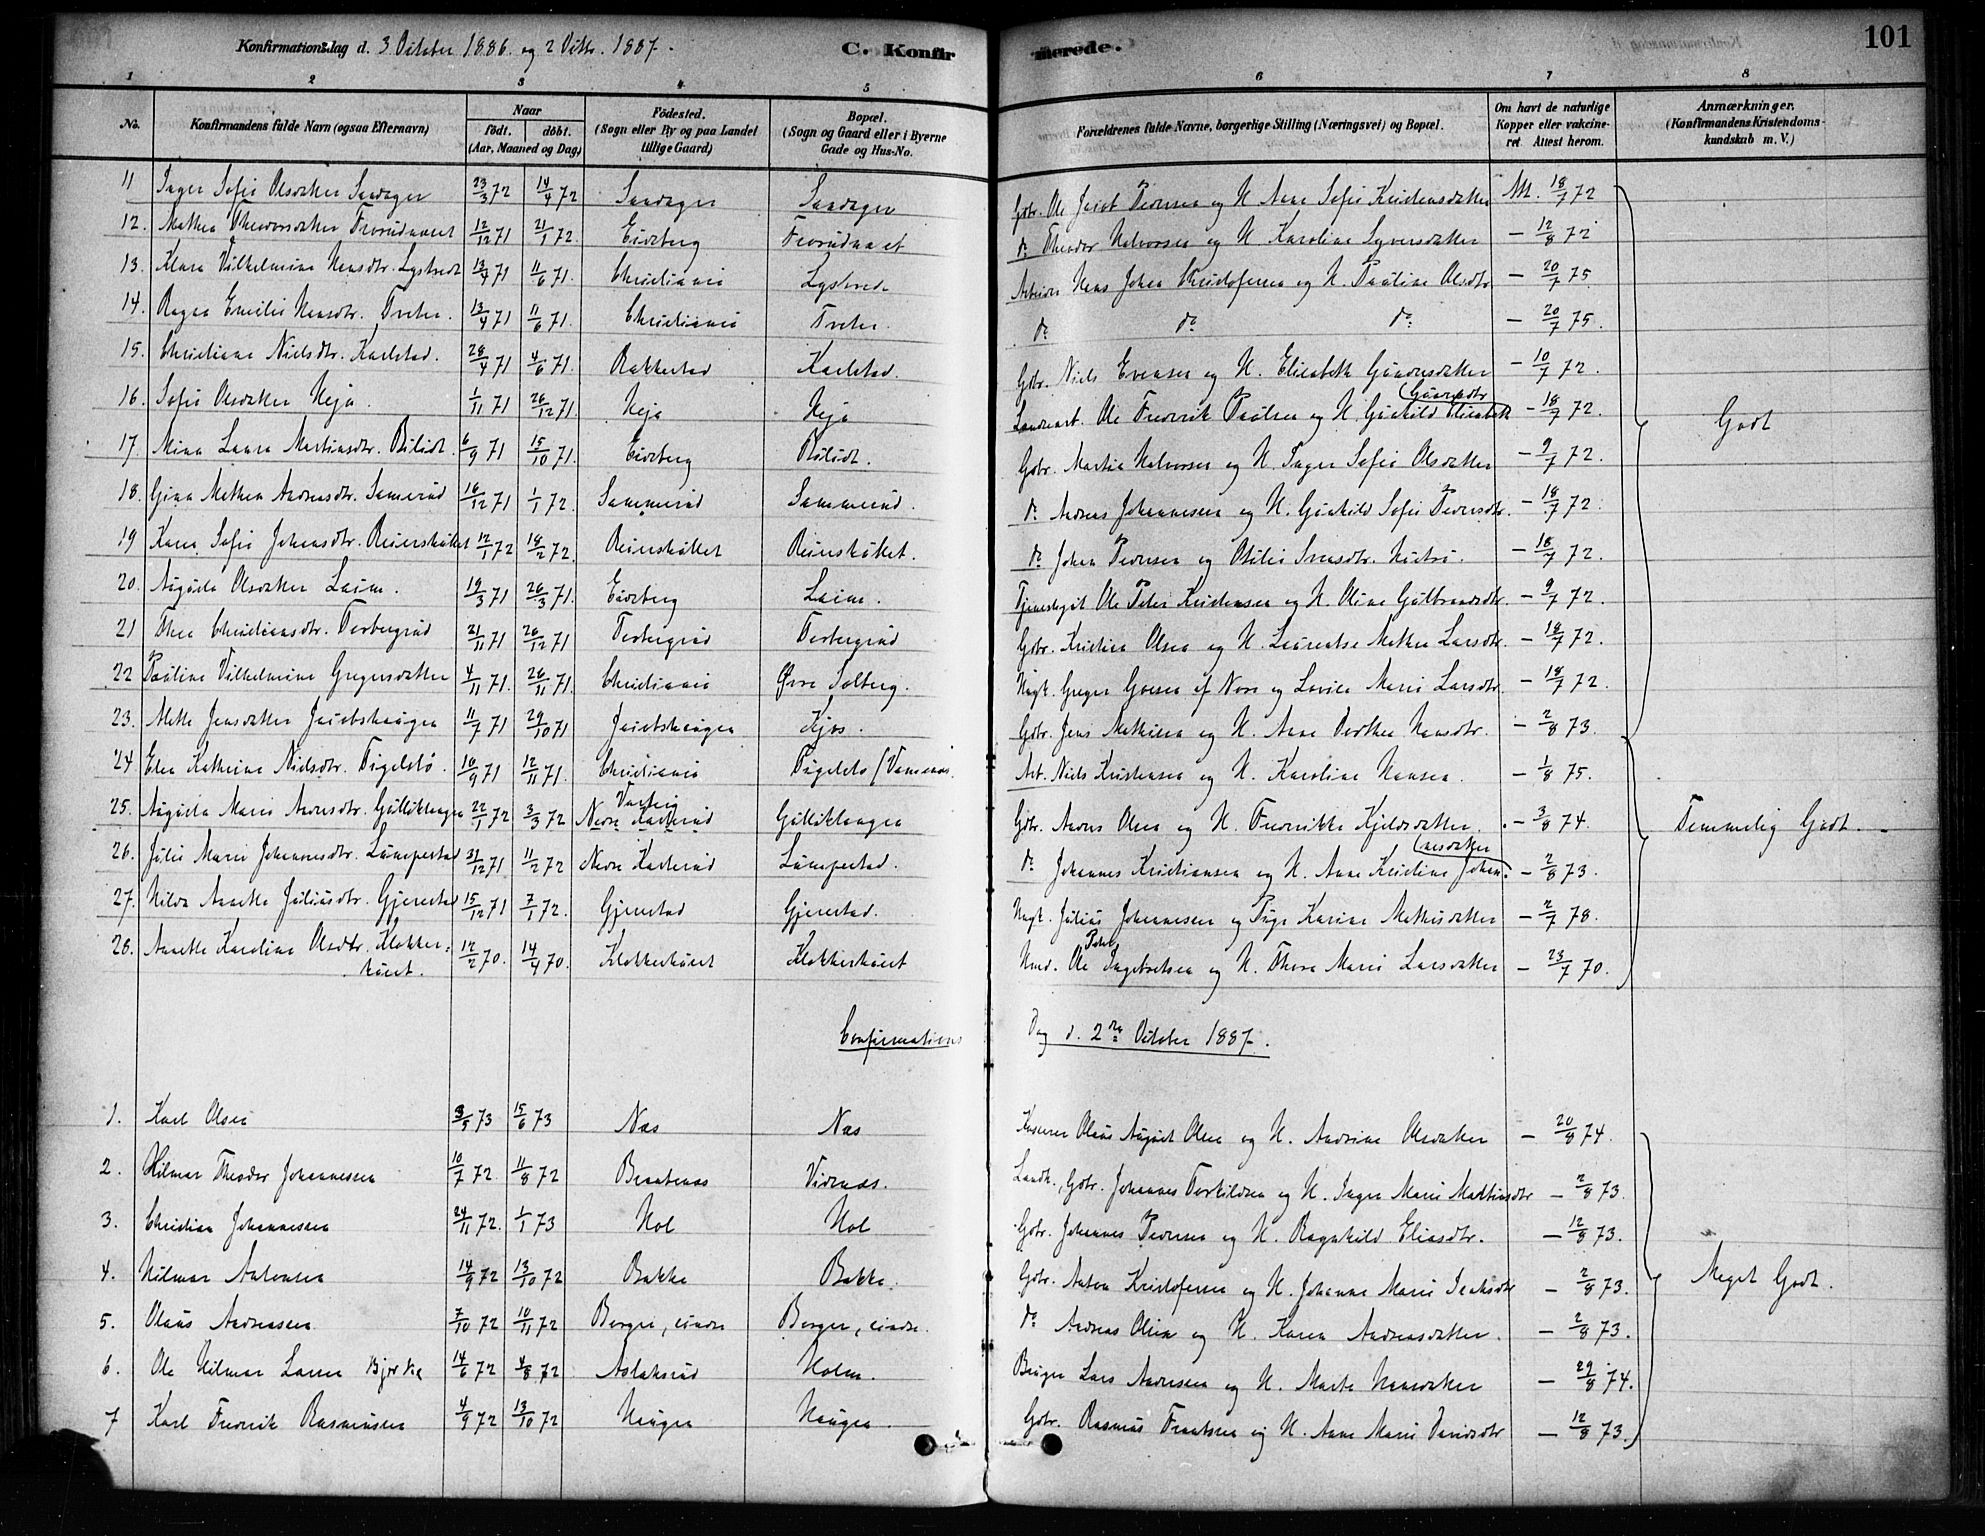 Konfirmationsdag d. 3 October 1886. og 2 Octbr. 1887.
C. Konfirmerede.
101
1 2 3 4 5 6 7 8
No.
Konfirmandens fulde Navn (ogsaa Efternavn)
Naar
født.
døbt.
(Aar, Maaned og Dag)
Fødested.
(Sogn eller By og paa Landet
tillige Gaard)
Bopæl.
(Sogn og Gaard eller i Byerne
Gade og Hus-No.
Forældrenes fulde Navne, borgerlige Stilling (Næringsvei) og Bopæl.
Om havt de naturlige
Kopper eller vakcine-
ret. Attest herom.
Anmærkninger.
(Konfirmandens Kristendoms-
kundskab m. V.)
11 Inger Sofie Olsdatter Sandager 23/3 72 14/4 72 Sandager Sandager Gbr. Ole Jacob Pedersen og H. Anne Sofie Kristensdatter Att. 18/7 72
12. Mathea Theodorsdatter 12/12 71 21/1 72. Eidsberg do Theodor Halvorsen og H. Karoline Syversdatter - 12/8 72
13. Klara Vilhelmine Hansdtr. Lystvedt 13/4 71 11/6 71. Christiania Lystved. Arbeider Hans Johan Kristofersen og H. Pauline Olsdtr - 20/7 75.
14. Ragna Emilie Hansdtr. Treter. 13/4 71 11/6 71. Christiania Treter. do do do - 20/7 75.
15. Christiane Nielsdtr. Karlstad. 28/4 71 4/6 71. Rakkestad Karlstad. Gbr. Niels Evensen og H. Elisabeth Gundersdatter - 10/7 72.
16. Sofie Olsdatter Heja. 1/11 71 26/12 71. Heja Heja Ole Fredrik Paulsen og H. Gunhild Elisabeth - 18/7 72.
17. Mina Laura Martinsdtr. 6/9 71 15/10 71. Eidsberg Gbr. Martin Halvorsen og H. Inger Sofie Olsdatter - 9/7 72.
18. Gina Mathea Andreasdtr. Samerud 16/12 71 1/1 72. Sammerud Sammerud. do Andreas Johannessen og H. Gunhild Sofie Pedersdtr. - 18/7 72.
19 Karen Sofie Johansdtr. Reierskullet 12/1 72 18/2 72. Reierskullet Reierskullet. do Johan Pedersen og Otilie Svensdtr. Hustru. - 18/7 72.
20. Augusta Olsdatter Leim. 19/3 71 26/3 71. Eidsberg Leim. Tjenestegut Ole Peter Kristensen og H. Oline Gulbrandsdtr. - 9/7 72.
21 Thea Christiansdtr. Torbergrud 21/11 71 26/12 71 Torbergrud Torbergrud Gbr. Kristian Olsen og H. Laurentse Mathea Larsdtr. - 18/7 72.
22 Pauline Vilhelmine Gregersdatter 4/11 71. 26/11 71. Christiania Øvre Solberg. Ungk. Greger Goesen af Nore og Lovise Marie Larsdtr. - 18/7 72.
23. Mette Jensdatter Jacobshaugen 11/7 71 29/10 71 Jacobshaugen Kjos. Gbr. Jens Mathisen og H. Anne Dorthea Hansdtr. - 2/8 73.
Godt
24 Elen Kathrine Nielsdtr. Tigelstö. 10/9 71 12/11 71. Christiania Tigelsto Arb. Niels Kristensen og H. Karoline Hansen. - 1/8 75.
25. Augusta Marie Andersdtr. Gullikhaugen 22/1 72 3/3 72 Varteig Gullikhaugen Gbr. Anders Olsen og H. Fredrikke Kjeldsdatter. - 3/8 74.
26. Julie Marie Johannesdtr. Lumpestad 31/12 71 11/2 72 Nedre Karterud Lumpestad. do Johannes Kristiansen og H. Anne Kristine Johan-
nesdatter - 2/8 73.
27. Hilda Anette Juliusdtr. Gjerestad 15/12 71 7/1 72. Gjerestad Gjerestad. Ungk. Julius Johannessen og Pige Karine Mathisdatter - 2/7 78.
28. Anette Karoline Olsdtr. Klokker-
huset. 12/2 70. 14/4 70. Klokkerhuset Klokkerhuset Ole Peter Ingebretsen og H. Thora Marie Larsdatter - 23/7 70.
Temmelig Godt.
Confirmations Dag d. 2den October 1887.
1. Karl Olsen 3/5 73 15/6 73 Næs Næs Olaus August Olsen og H. Andrine Olsdatter - 20/8 74.
2. Hilmar Theodor Johannessen 10/7 72. 11/8 72 Brautenes Vidnæs. Landh., Gbr. Johannes Torkildsen og H. Inger Marie Martinsdtr - 2/8 73.
3. Christian Johannessen 24/11 72. 1/1 73 Hol Hol Gbr. Johannes Pedersen og H. Ragnhild Eliasdtr. - 12/8 73.
4. Hilmar Antonsen 14/9 72 13/10 72 Bakke Bakke. Gbr. Anton Kristofersen og H. Johanne Marie Isaksdtr - 2/8 73.
5. Olaus Andreassen 7/10 72 10/11 72 Berger, Berger, do Andreas Olsen og H. Karen Andreasdatter. - 2/8 73.
6. Ole Hilmar Larsen Bjerke 14/6 72 4/8 72 Aslaksrud Holm. Bruger Lars Andersen og H. Marte Hansdatter - 29/8 74.
7 Karl Fredrik Rasmussen 4/9 72 13/10 72 Haugen Haugen Gbr. Rasmus Frantsen og H. Anne Marie Davidsdtr - 12/8 73.
Meget Godt.